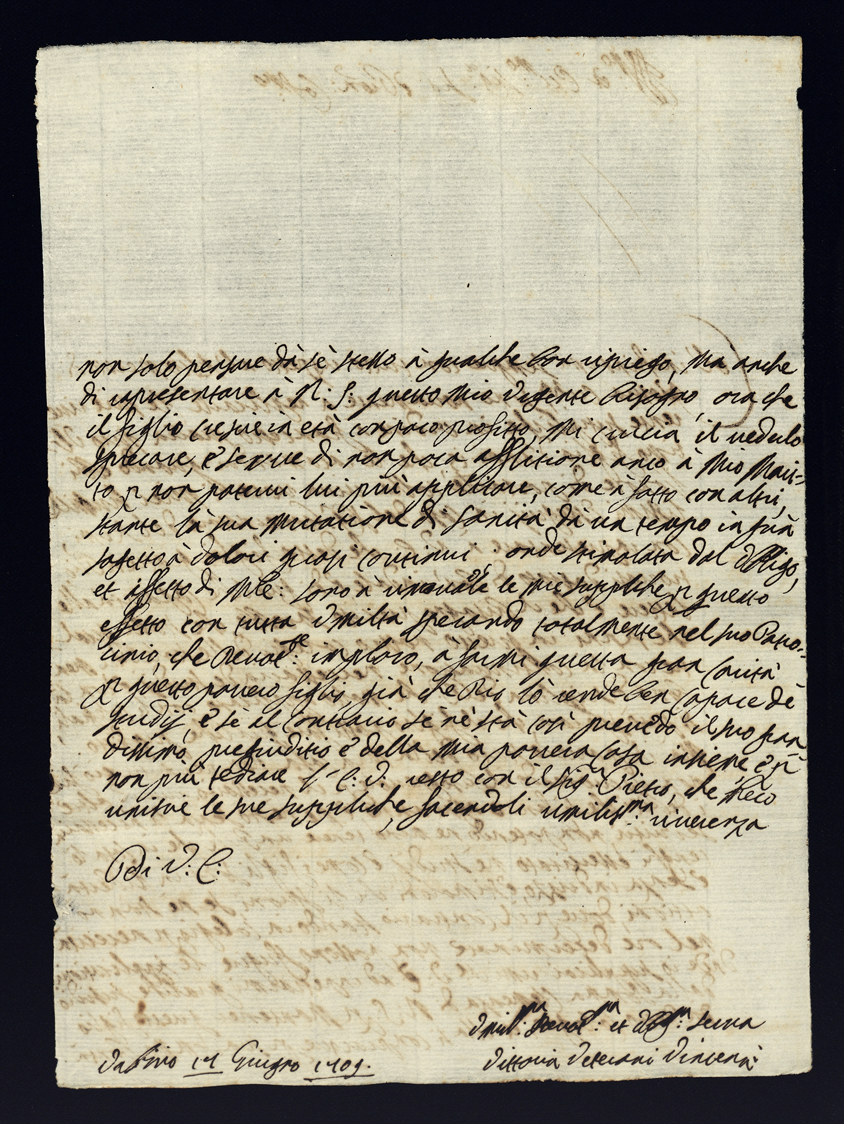 non solo pensare dà sè stesso à qualche bon ripiego, ma anche
di rapresentare à N. S. questo mio Urgente bisogno, ora che
il figlio cresce in età con poco profitto, Mi crucia il vederlo
precare, e serve di non poca afflitione anco à Mio Mari-
to non potervi lui più applicare, come à fatto con altri,
stante la sua mutatione di sanità dà un tempo in quà
sogetto à dolori quasi continui; onde stimolata dal obligo,
et affetto di Mre: sono à rinovarle le mie suppliche questo
effetto con tutta Umiltà sperando totalmente nel suo Patro-
cinio, che Devotte: imploro, à farmi questa gran Carità
questo povero figlio, già che Dio lo rende ben capace dè
studij, e sè al contrario se ne stà così prevedo il suo gran
dissimo pregiuditio e della mia povera Casa insieme e
non più tediare l'E. V. resto con il Sigr Pietro, che Meco
unisce le sue suppliche, facendoli umilissma riverenza
Di V. E:
Umilma: Devotma: et Obligma: Serva
Vittoria Veterani Vincenzi
Urbino 17 Giugno 1709.